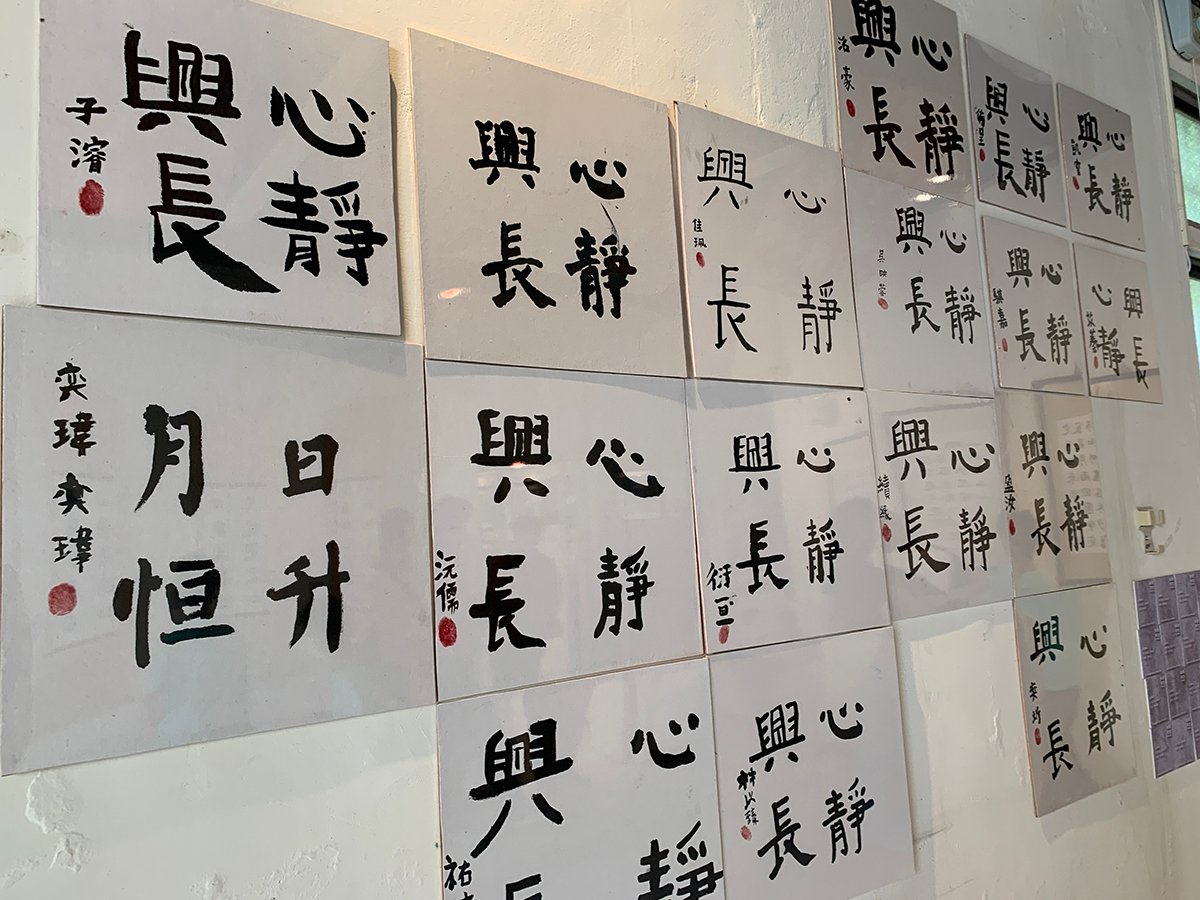 心靜
興長
子濬
心靜
興長
心靜
興長
佳珮
心靜
興長
洛豪
心靜
興長
心靜
興長
心靜
興長
心靜
興長
興長
心靜
日升
月恒
奕瑋奕瑋
心靜
興長
沅儒
心靜
興長
衍亘
心靜
興長
心靜
興長
盈汝
心靜
興長
心靜
興長
祐
心靜
興長
奕圻